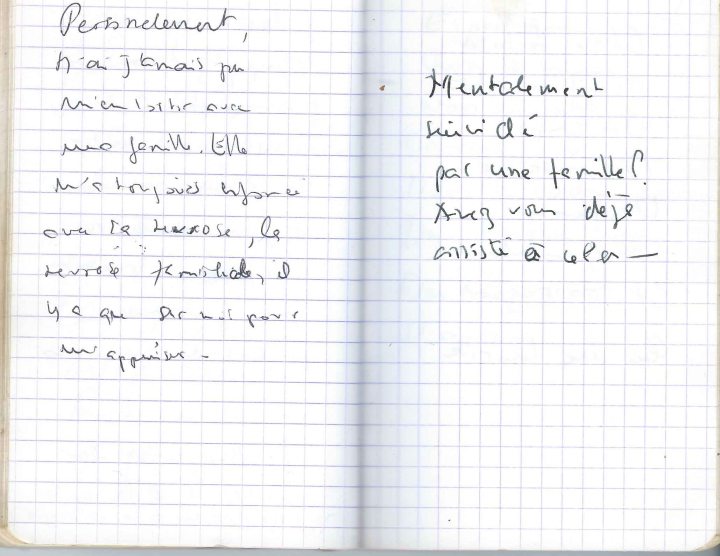 Personnelement,
n'ai jamais pu
avec
une famille. Elle
m'a toujours
avec la nevrose, la
nevrose familiale, il
y a que sur moi pour
m'appuier -
Mentalement
suicidé
par une famille ?
Avez vous déjà
assisté à cela —